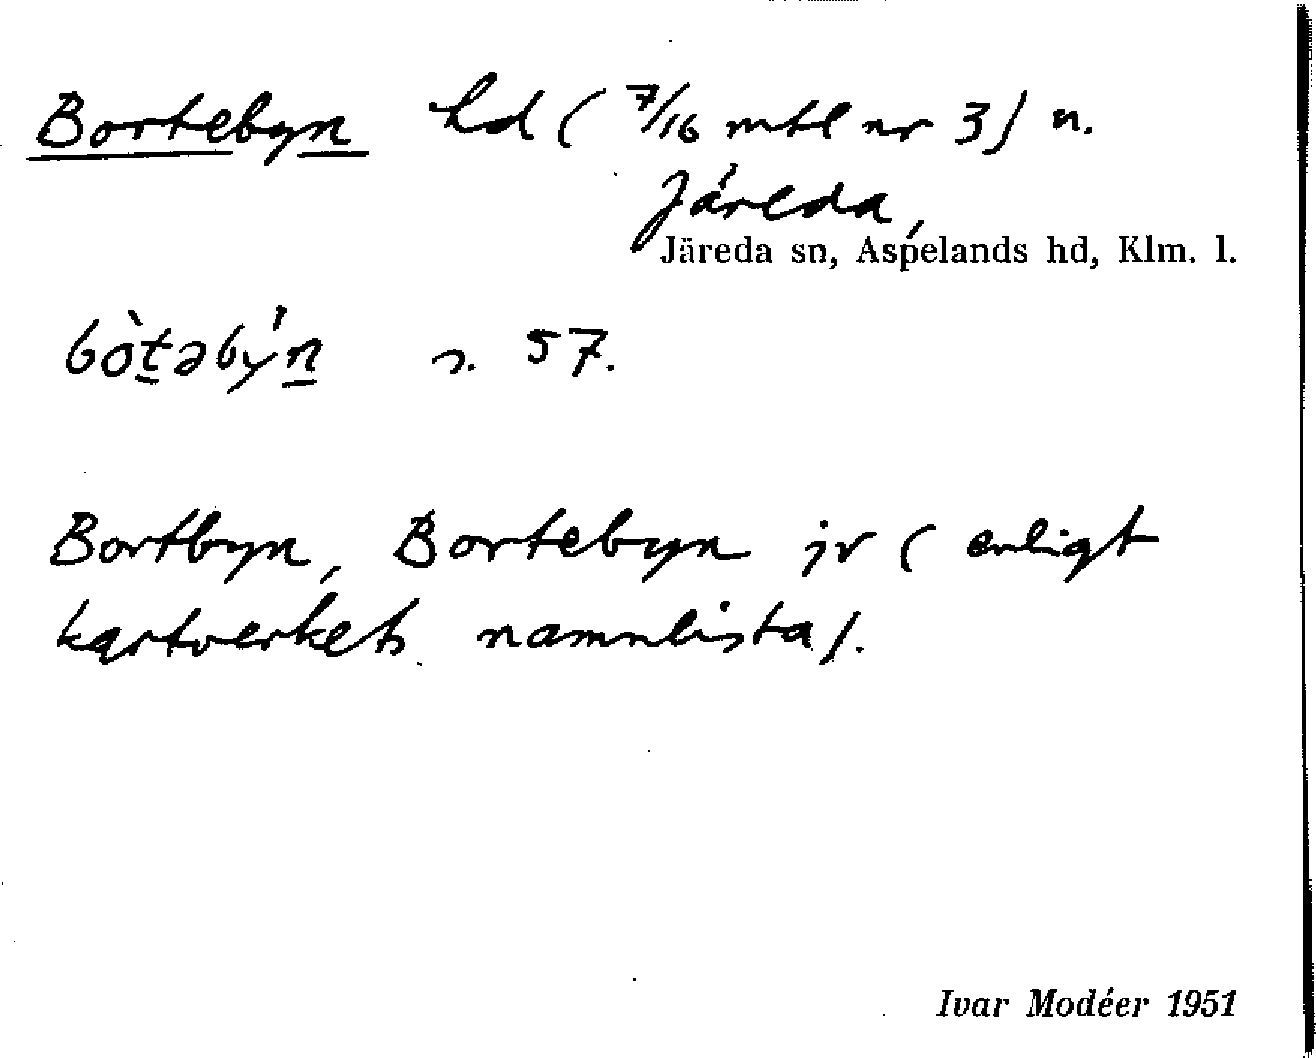 Bortebyn hd (7/16 mtl nr 3) n.
Järeda,
Järeda sn, Aspelands hd, Klm. l.
bòt̲əbýn̲ s. 57.
Bortbyn, Bortebyn jr (enligt
kartverkets namnlista).
Ivar Modéer 1951